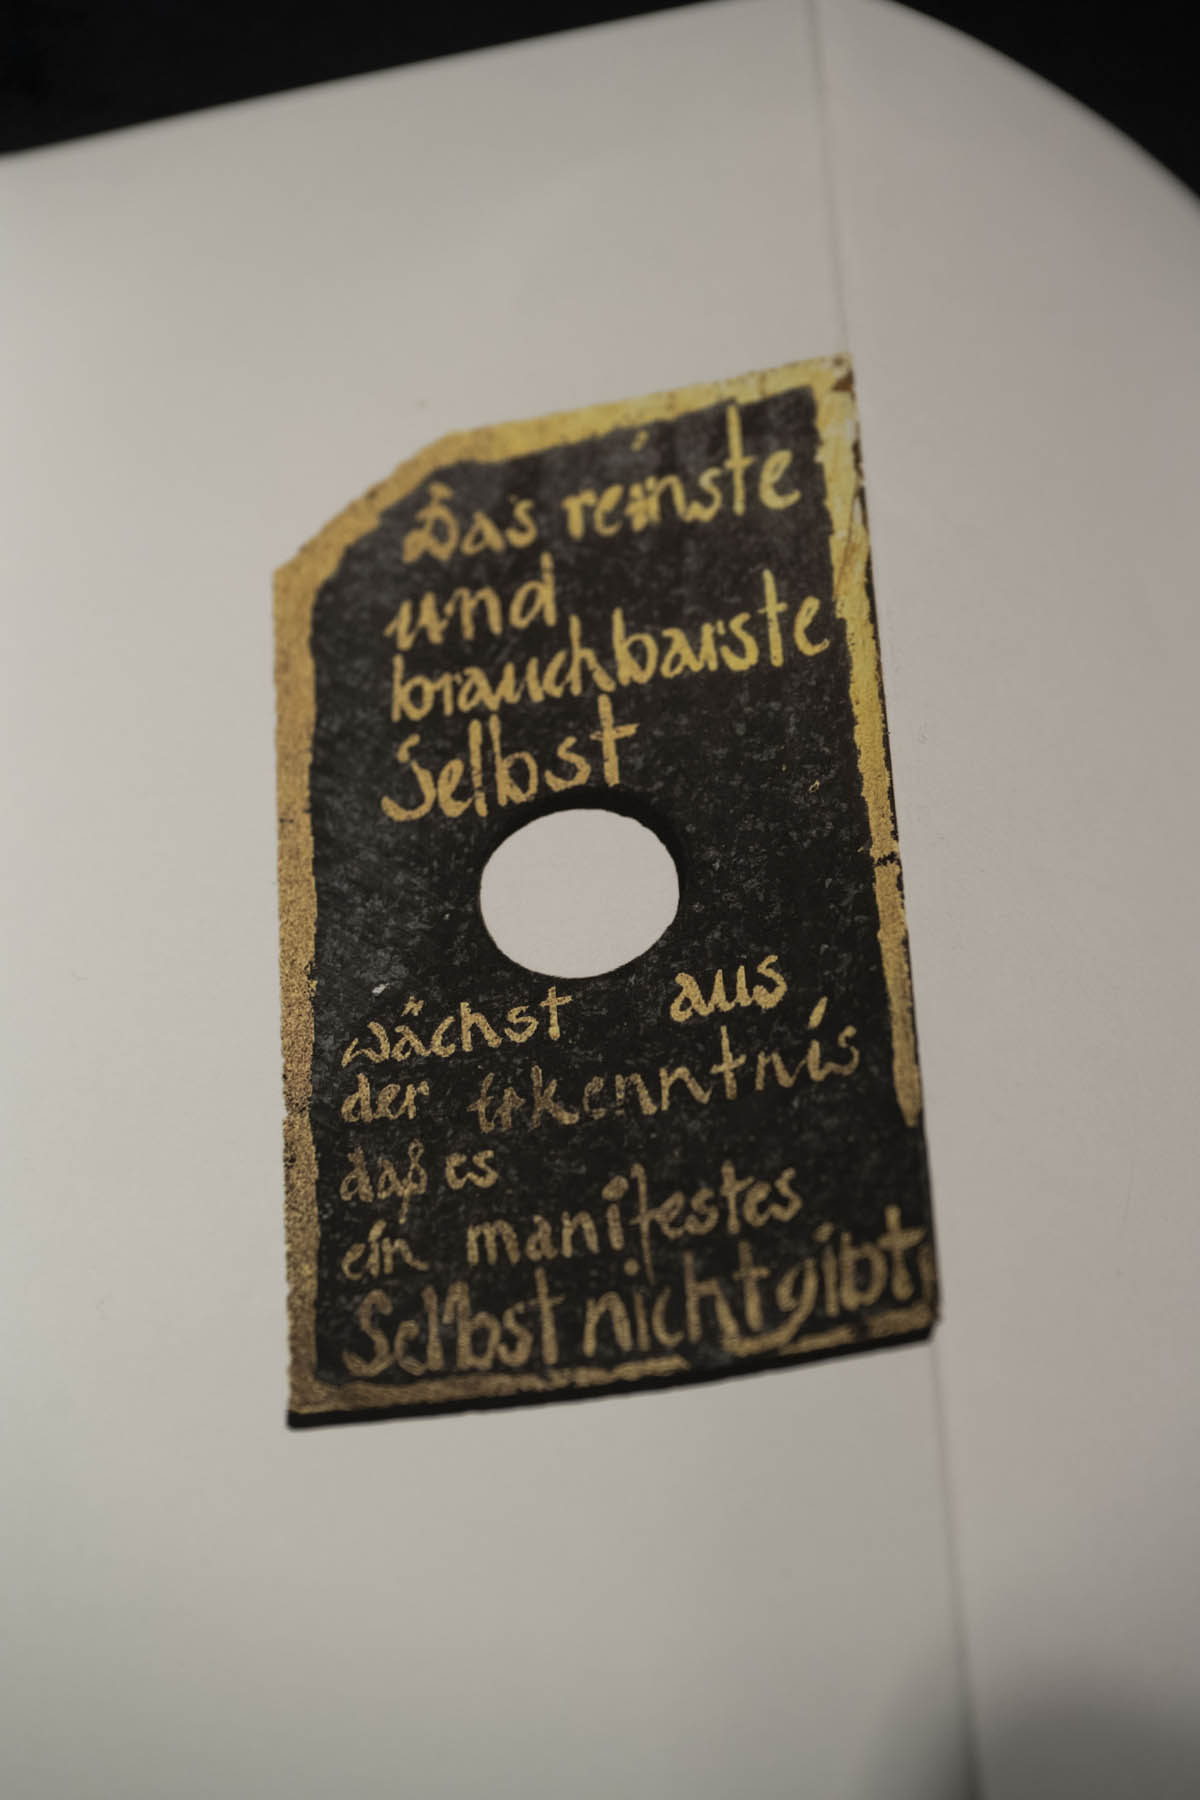 Das reinste
und
brauchbarste
Selbst
wächst aus
der Erkenntnis
daß es
ein manifestes
Selbst nicht gibt